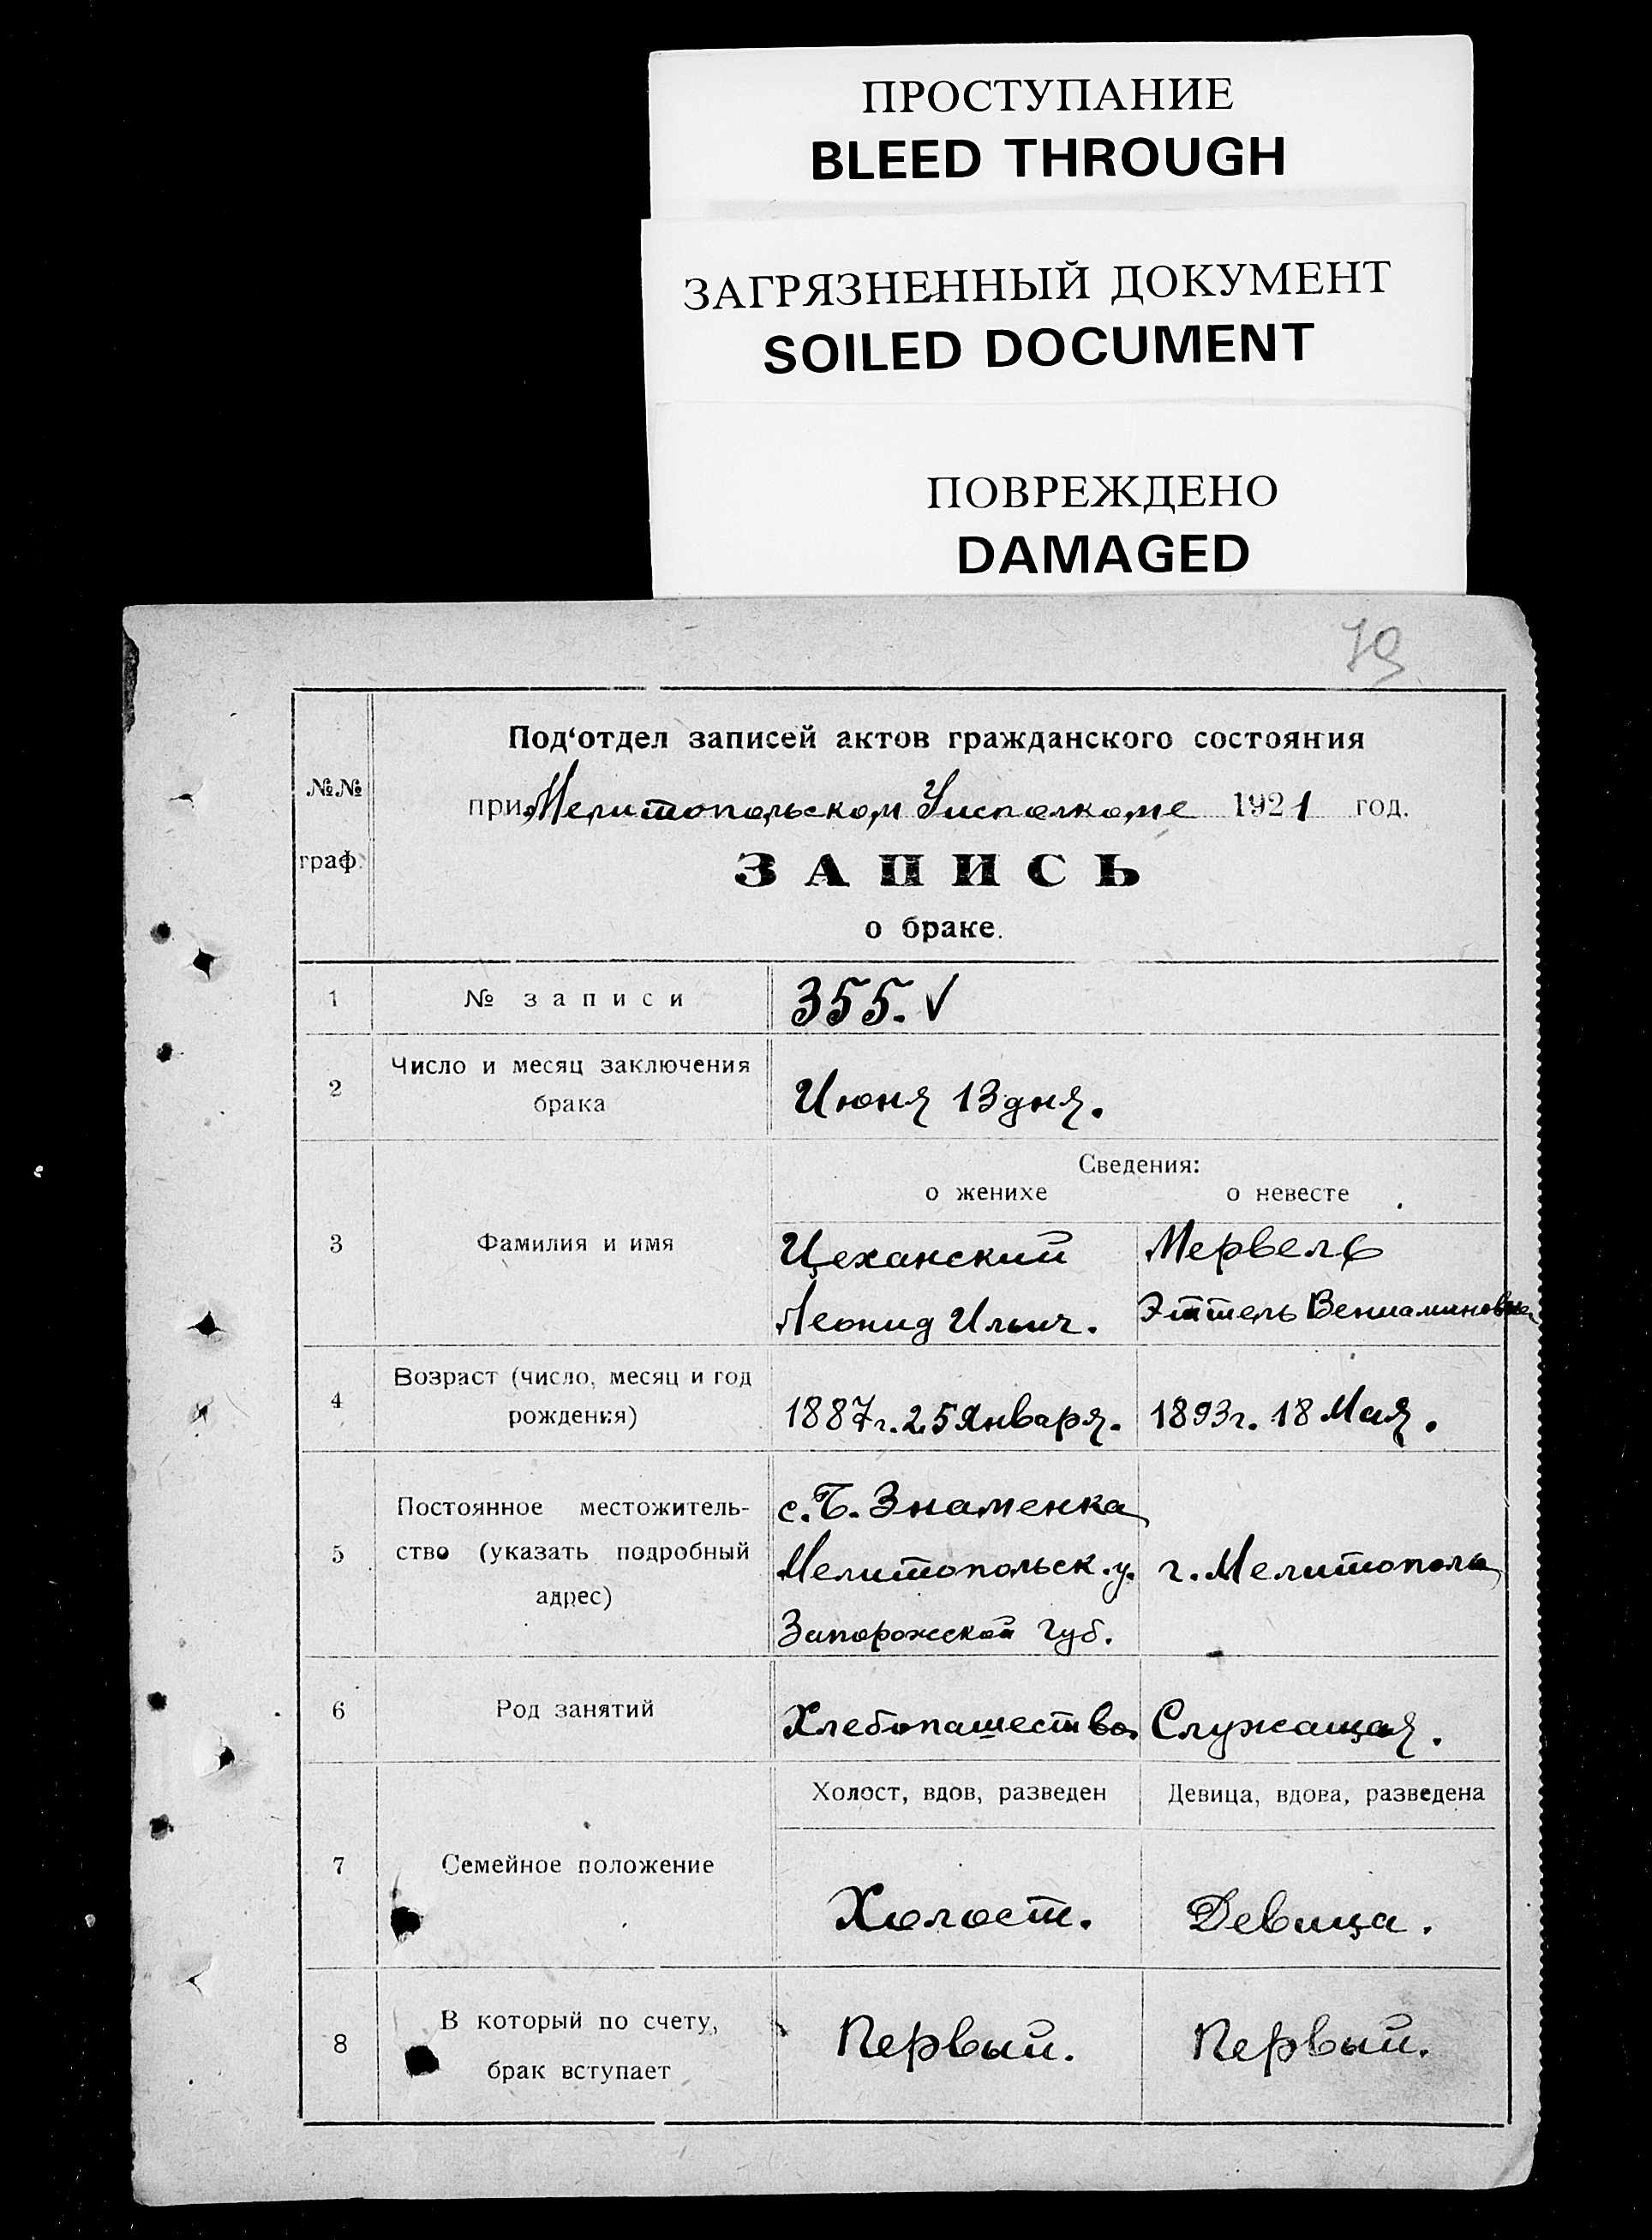 ПРОСТУПАНИЕ
BLEED THROUGH
ЗАГРЯЗНЕННЫЙ ДОКУМЕНТ
SOILED DOCUMENT
ПОВРЕЖДЕНО
DAMAGED
79
№№ граф.
Под‘отдел записей актов гражданского состояния
при Мелитопольском Уисполкоме 1921 год.
ЗАПИСЬ
о браке.
1 № записи 355. ✓
2 Число и месяц заключения
брака Июня 13 дня.
Сведения:
о женихе о невесте
3 Фамилия и имя Цеханский Мервель
Леонид Ильич. Эттель Вениаминовна
4 Возраст (число, месяц и год
рождения) 1887 г. 25 Января. 1893 г. 18 Мая.
5 Постоянное местожитель-
ство (указать подробный
адрес)
с. Б. Знаменка
Мелитопольск. у. г. Мелитополь
Запорожской губ.
6 Род занятий Хлебопашество. Служащая.
Холост, вдов, разведен Девица, вдова, разведена
7 Семейное положение Холост. Девица.
8 В который по счету,
брак вступает Первый. Первый.